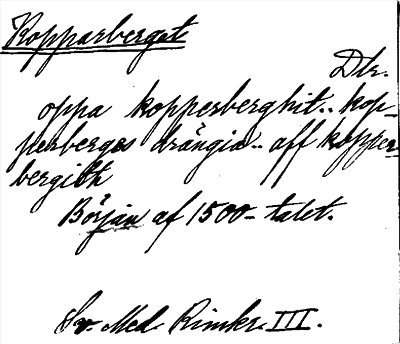 Kopparberget
Dlr.
oppa kopperberghit.. kop-
perberges drängia.. aff kopper-
bergith
Början af 1500-talet.
Sv. Med. Rimkr. III.